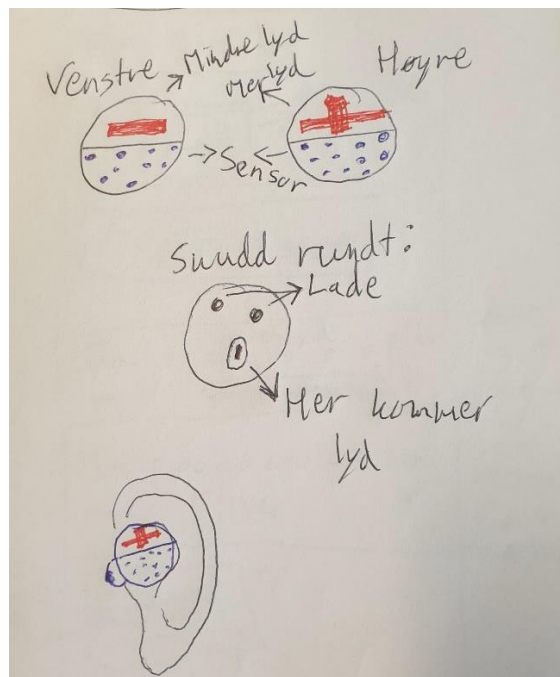 Venstre
Mindre lyd
Mer lyd
Høyre
Sensor
Snudd rundt:
Lade
Her kommer
lyd